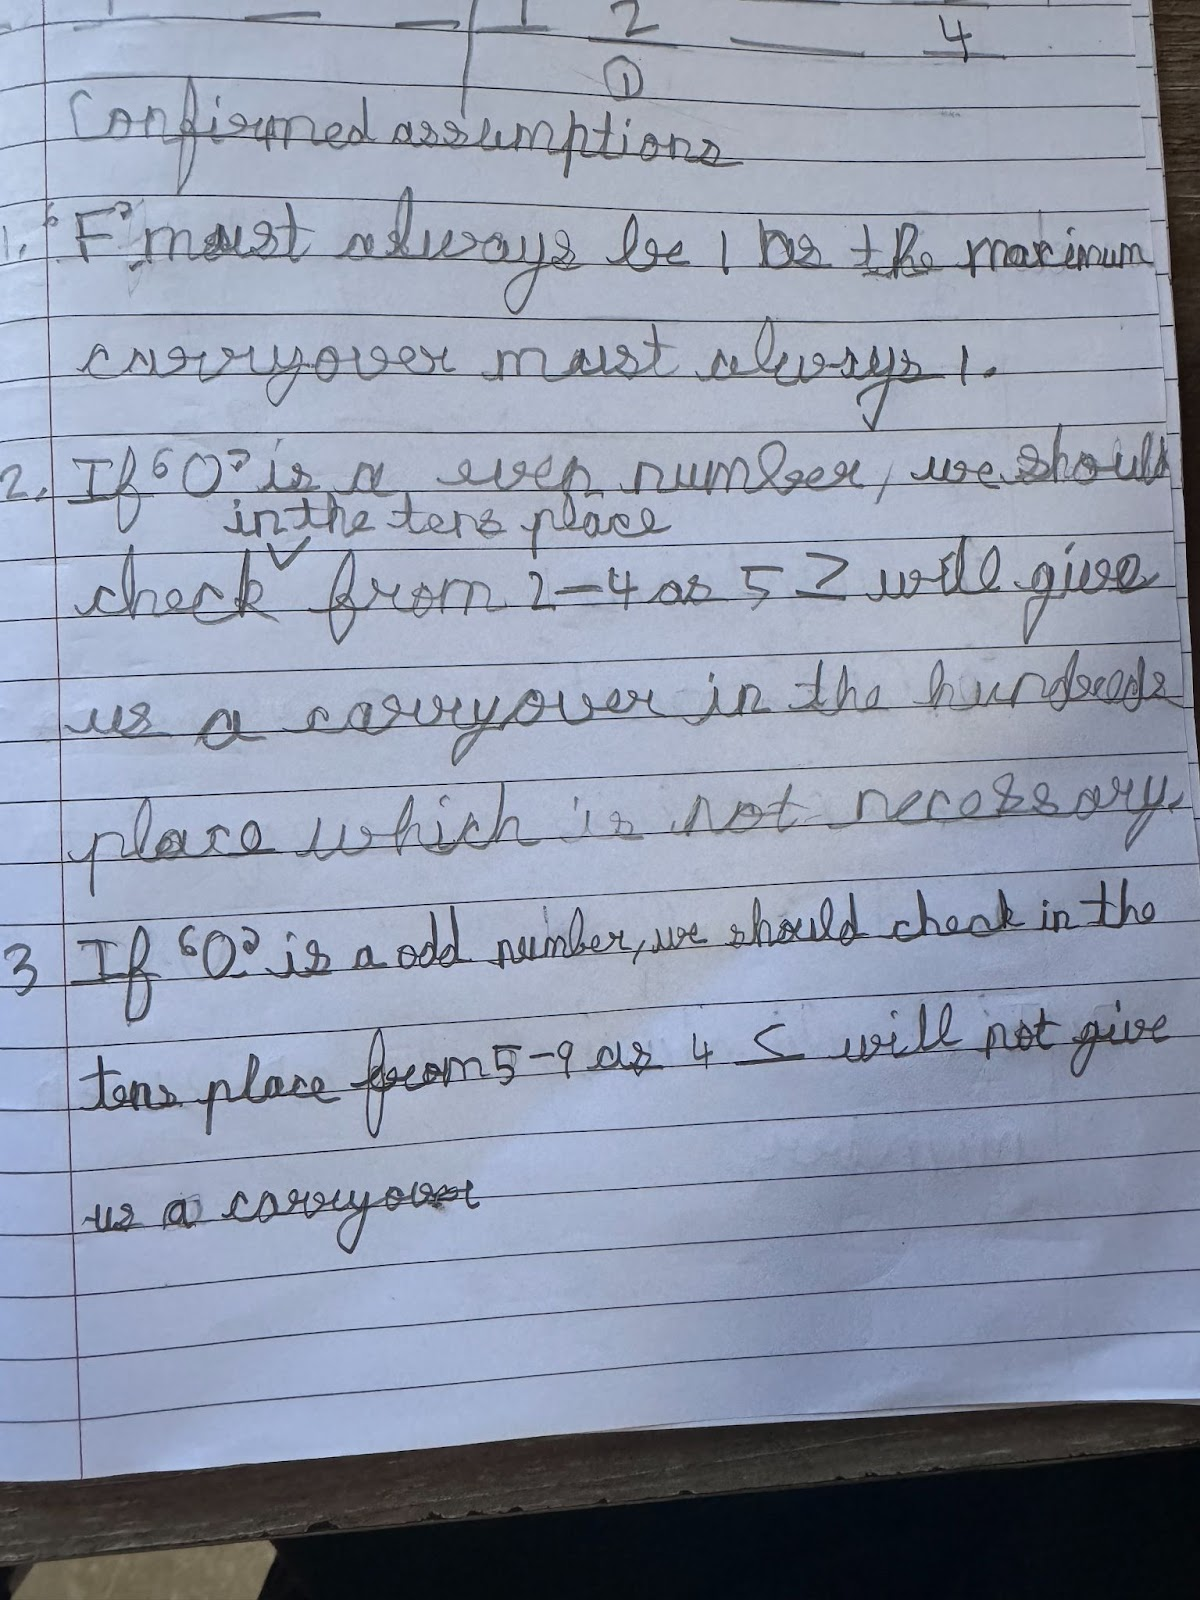 1 2 4
①
Confirmed assumptions
1. 'F' must always be 1 as the maximum
carryover must always 1.
2. If 'O' is a even number, we should
in the tens place
check from 2-4 as 5 ≥ will give
us a carryover in the hundreds
place which is not necessary.
3 If 'O' is a odd number, we should check in the
tens place from 5-9 as 4 ≤ will not give
us a carryover